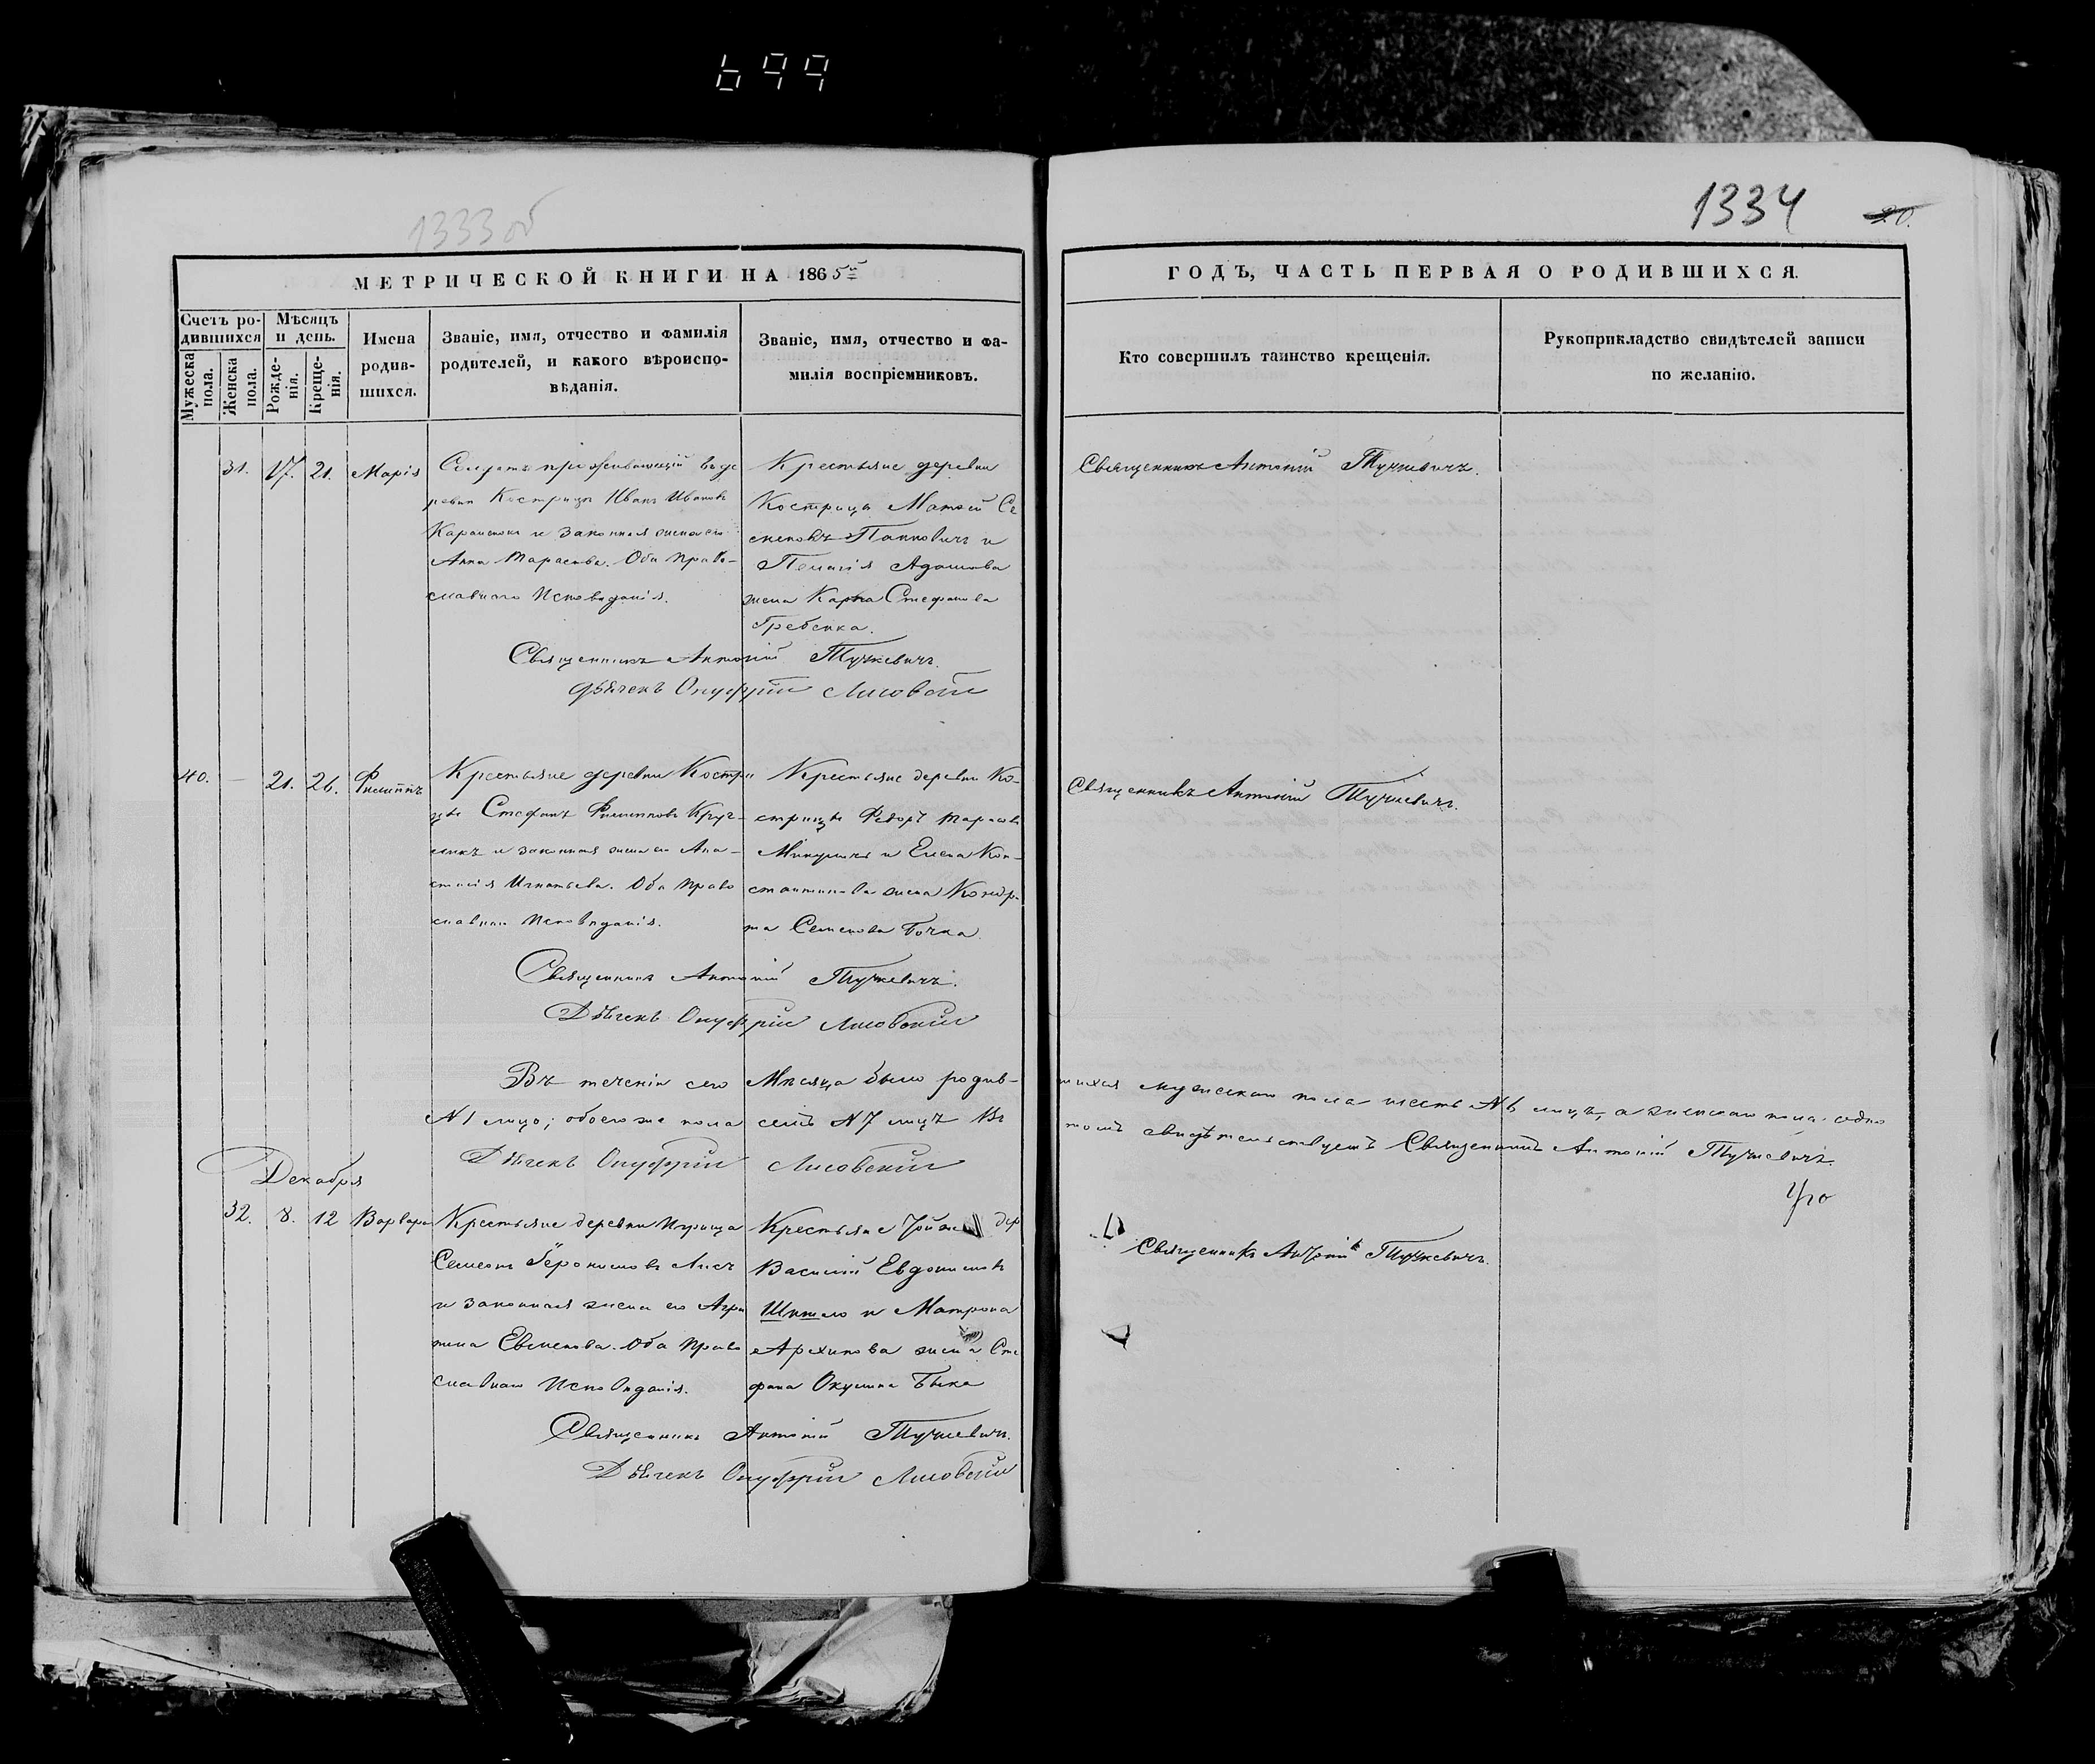 699
1333об
1334
20.
МЕТРИЧЕСКОЙ КНИГИ НА 1865й
ГОДЪ, ЧАСТЬ ПЕРВАЯ О РОДИВШИХСЯ.
Счетъ ро-
дившихся
Мужеска
пола.
Женска
пола.
Мѣсяцъ
и день.
Рожде-
нія.
Креще-
нія.
Имена
родив-
шихся.
Званіе, имя, отчество и фамилія
родителей, и какого вѣроиспо-
вѣданія.
Званіе, имя, отчество и фа-
милія воспріемниковъ.
Кто совершилъ таинство крещенія.
Рукоприкладство свидѣтелей записи
по желанію.
31. 17. 21. Марія
Солдатъ проживающій въ де
ревни Кострицѣ Иванъ Ивановъ
и законная жена его
Анна Тарасова. Оба Право-
славнаго Исповѣданія.
Крестьяне деревни
Кострицы Матѳей Се
меновъ Панковичъ и
Пелагія Адамова
жена Карпа Стефанова
Гребенка.
Священникъ Антоній Тучкевичъ.
Священникъ Антоній Тучкевичъ.
Дьячекъ Онуфрій Лисовскій
40. — 21. 26. Филиппъ
Крестьяне деревни Костри
цы Стефанъ Филипповъ Круг-
ликъ и законная жена его Ана-
стасія Игнатьева. Оба Право
славнаго Исповѣданія.
Крестьяне деревни Ко-
стрицы Ѳедоръ Тарасовъ
Микуличъ и Елена Кон-
стантинова жена Кондра
та Семенова Бочка.
Священникъ Антоній Тучкевичъ.
Священникъ Антоній Тучкевичъ.
Дьячекъ Онуфрій Лисовскій
Въ теченіи сего Мѣсяца было родив-
шихся мужескаго пола шесть N 6 лицъ, а женскаго пола одно
N 1 лицо; обоего же пола семь N 7 лицъ Въ
томъ свидѣтельствуетъ Священникъ Антоній Тучкевичъ.
Дьячекъ Онуфрій Лисовскій
Декабря
32. 8. 12 Варвара
Крестьяне деревни Игрища
Семеонъ Іеронимовъ Лисъ
и законная жена его Агри
пина Евменова. Оба Право
славнаго Исповѣданія.
Крестьяне той же дер
Василій Евдокимовъ
Шитло и Матрона
Архипова жена Сте
фана Окулина Быка
Священникъ Антоній Тучкевичъ.
Священникъ Антоній Тучкевичъ.
Дьячекъ Онуфрій Лисовскій